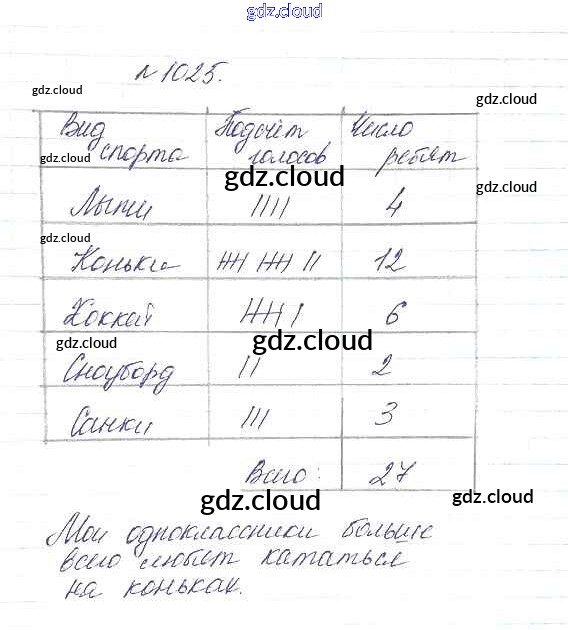 gdz.cloud
№1025.
gdz.cloud
gdz.cloud
Вид спорта | Подсчёт голосов | Число ребят
gdz.cloud
gdz.cloud
gdz.cloud
Лыжи | |||| | 4
Коньки | ~~||||~~ ~~||||~~ || | 12
gdz.cloud
Хоккей | ~~||||~~ | | 6
gdz.cloud
gdz.cloud
Сноуборд | || | 2
Санки | ||| | 3
Всего: | 27
gdz.cloud
gdz.cloud
Мои одноклассники больше
всего любят кататься
на коньках.